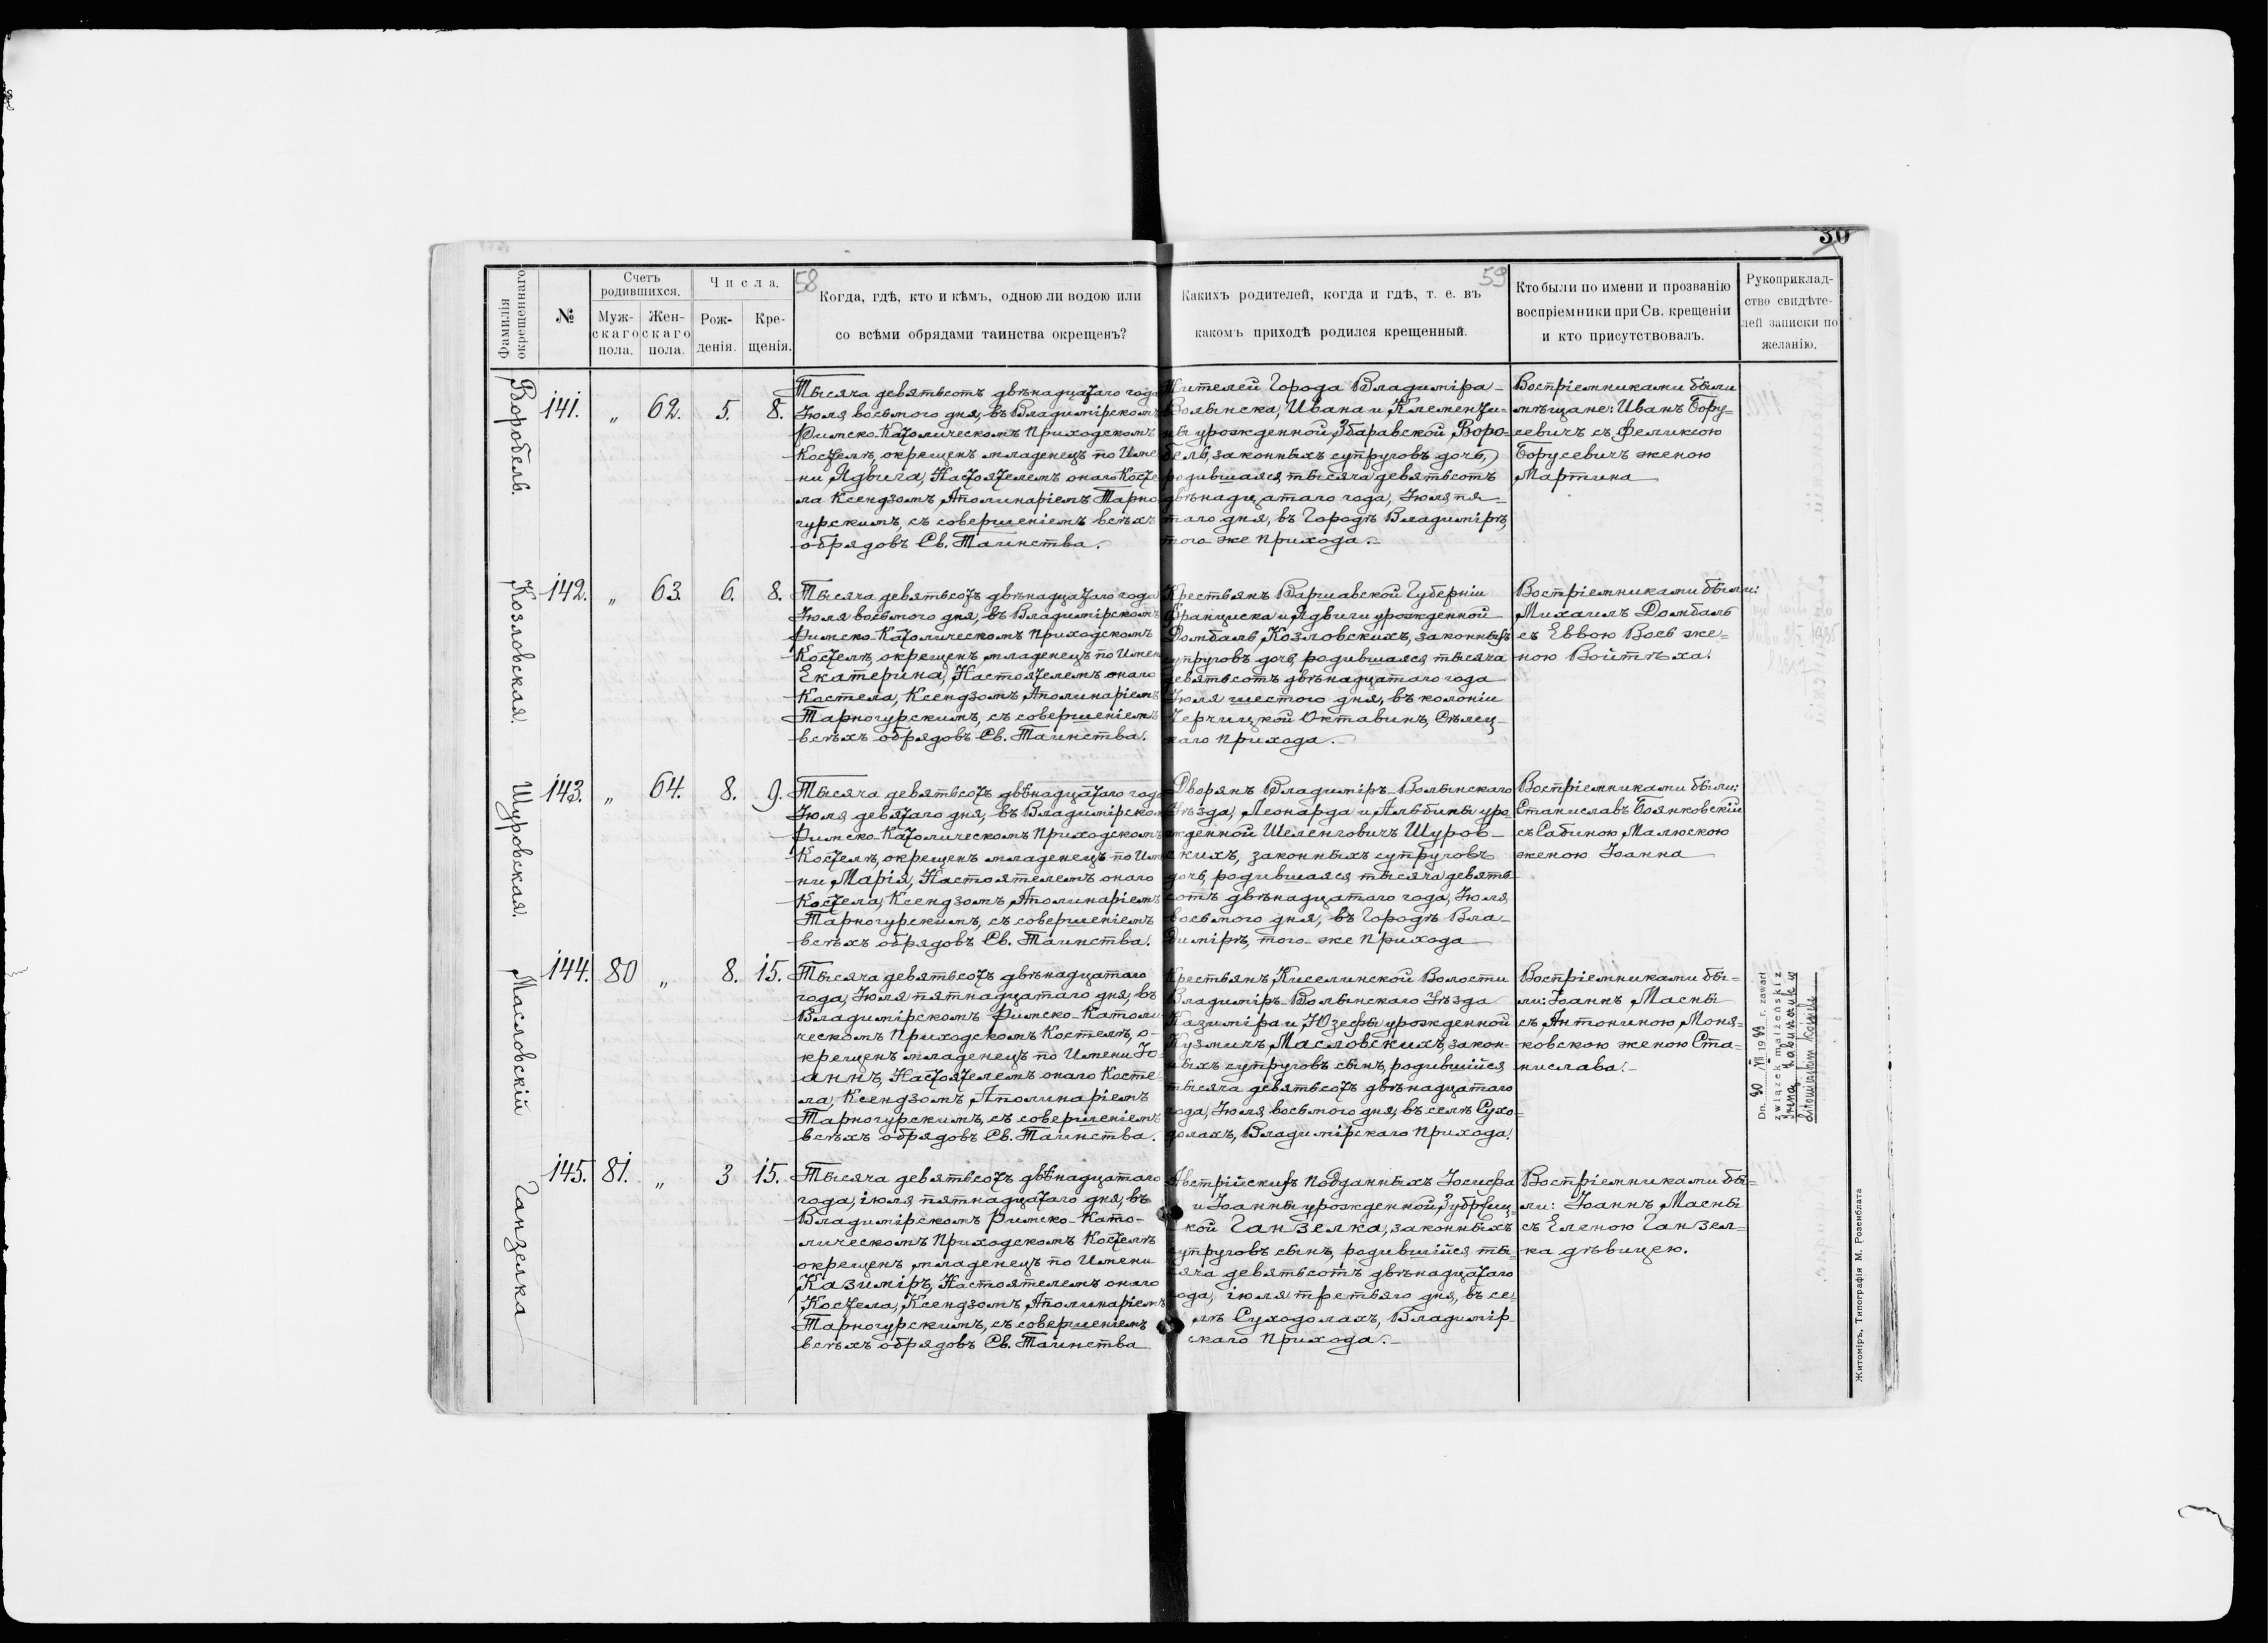 30
58
59
Фамилія окрещеннаго
№
Счетъ родившихся.
Муж-
скаго
пола.
Жен-
скаго
пола.
Числа.
Рож-
денія.
Кре-
щенія.
Когда, гдѣ, кто и кѣмъ, одною ли водою или
со всѣми обрядами таинства окрещенъ?
Какихъ родителей, когда и гдѣ, т. е. въ
какомъ приходѣ родился крещенный.
Кто были по имени и прозванію
воспріемники при Св. крещеніи
и кто присутствовалъ.
Рукоприклад-
ство свидѣте-
лей записки по
желанію.
Воробель.
141. „ 62. 5. 8.
Тысяча девятьсотъ двѣнадцатаго года
Іюля восьмого дня, въ Владимірскомъ
Римско-Католическомъ Приходскомъ
Костелѣ, окрещенъ младенецъ по Име-
ни Ядвига, Настоятелемъ онаго Косте-
ла Ксендзомъ Аполинаріемъ Тарно-
гурскимъ, съ совершеніемъ всѣхъ
обрядовъ Св. Таинства.
Жителей Города Владиміра-
Волынска, Ивана и Клементи-
ны урожденной Збаравской, Воро-
бель, законныхъ супруговъ дочь,
родившаяся тысяча девятьсотъ
двѣнадцатаго года, Іюля пя-
таго дня, въ Городѣ Владимірѣ,
того-же прихода.-
Воспріемниками были
мѣщане: Иванъ Бору-
севичъ съ Феликсою
Борусевичъ женою
Мартина
Козловская.
142. „ 63. 6. 8.
Тысяча девятьсотъ двѣнадцатаго года
Іюля восьмого дня, въ Владимірскомъ
Римско-Католическомъ Приходскомъ
Костелѣ, окрещенъ младенецъ по Имени
Екатерина, Настоятелемъ онаго
Костела, Ксендзомъ Аполинаріемъ
Тарногурскимъ, съ совершеніемъ
всѣхъ обрядовъ Св. Таинства.
Крестьянъ Варшавской Губерніи
Франциска и Ядвиги урожденной
Домбаль, Козловскихъ, законныхъ
супруговъ дочь, родившаяся тысяча
девятьсотъ двѣнадцатаго года
Іюля шестого дня, въ колоніи
Черчицкой Октавинъ, Сѣлец-
каго прихода.-
Воспріемниками были:
Михаилъ Домбаль
съ Еввою Воев же-
ною Войтѣха.
Шуровская.
143. „ 64. 8. 9.
Тысяча девятьсотъ двѣнадцатаго года
Іюля девятаго дня, въ Владимірскомъ
Римско-Католическомъ Приходскомъ
Костелѣ, окрещенъ младенецъ по Име-
ни Марія, Настоятелемъ онаго
Костела, Ксендзомъ Аполинаріемъ
Тарногурскимъ, съ совершеніемъ
всѣхъ обрядовъ Св. Таинства.
Дворянъ Владиміръ-Волынскаго
Уѣзда, Леонарда и Альбины уро-
жденной Шеленговичъ Шуров-
скихъ, законныхъ супруговъ
дочь, родившаяся тысяча девять-
сотъ двѣнадцатаго года, Іюля
восьмого дня, въ Городѣ Вла-
димірѣ, того-же прихода
Воспріемниками были:
Станиславъ Боянковскій
съ Сабиною Малюскою
женою Іоанна
Масловскій
144. 80 „ 8. 15.
Тысяча девятьсотъ двѣнадцатаго
года, Іюля пятнадцатаго дня, въ
Владимірскомъ Римско-Католи-
ческомъ Приходскомъ Костелѣ, о-
крещенъ младенецъ по Имени Іо-
аннъ, Настоятелемъ онаго Косте-
ла, Ксендзомъ Аполинаріемъ
Тарногурскимъ, съ совершеніемъ
всѣхъ обрядовъ Св. Таинства.
Крестьянъ Киселинской Волости
Владиміръ-Волынскаго Уѣзда
Казиміра и Юзефы урожденной
Кузмичъ, Масловскихъ, закон-
ныхъ супруговъ сынъ, родившійся
тысяча девятьсотъ двѣнадцатаго
года, Іюля восьмого дня, въ селѣ Сухо-
долахъ, Владимірскаго прихода.
Воспріемниками бы-
ли: Іоаннъ Масны
съ Антониною Моня-
ковскою женою Ста-
нислава.-
Dn. 30 VII 1944 r. zawarł
związek małżeński z
Ганзелка
145. 81. „ 3 15.
Тысяча девятьсотъ двѣнадцатаго
года, іюля пятнадцатаго дня, въ
Владимірскомъ Римско-Като-
лическомъ Приходскомъ Костелѣ
окрещенъ младенецъ по Имени
Казиміръ, Настоятелемъ онаго
Костела, Ксендзомъ Аполинаріемъ
Тарногурскимъ, съ совершеніемъ
всѣхъ обрядовъ Св. Таинства
Австрійскихъ подданныхъ Іосифа
и Іоанны урожденной Зубриц-
кой Ганзелка, законныхъ
супруговъ сынъ, родившійся ты-
сяча девятьсотъ двѣнадцатаго
года, іюля третьяго дня, въ се-
лѣ Суходолахъ, Владимір-
скаго прихода.-
Воспріемниками бы-
ли: Іоаннъ Масны
съ Еленою Ганзел-
ка дѣвицею.
Житоміръ, Типографія М. Розенблата